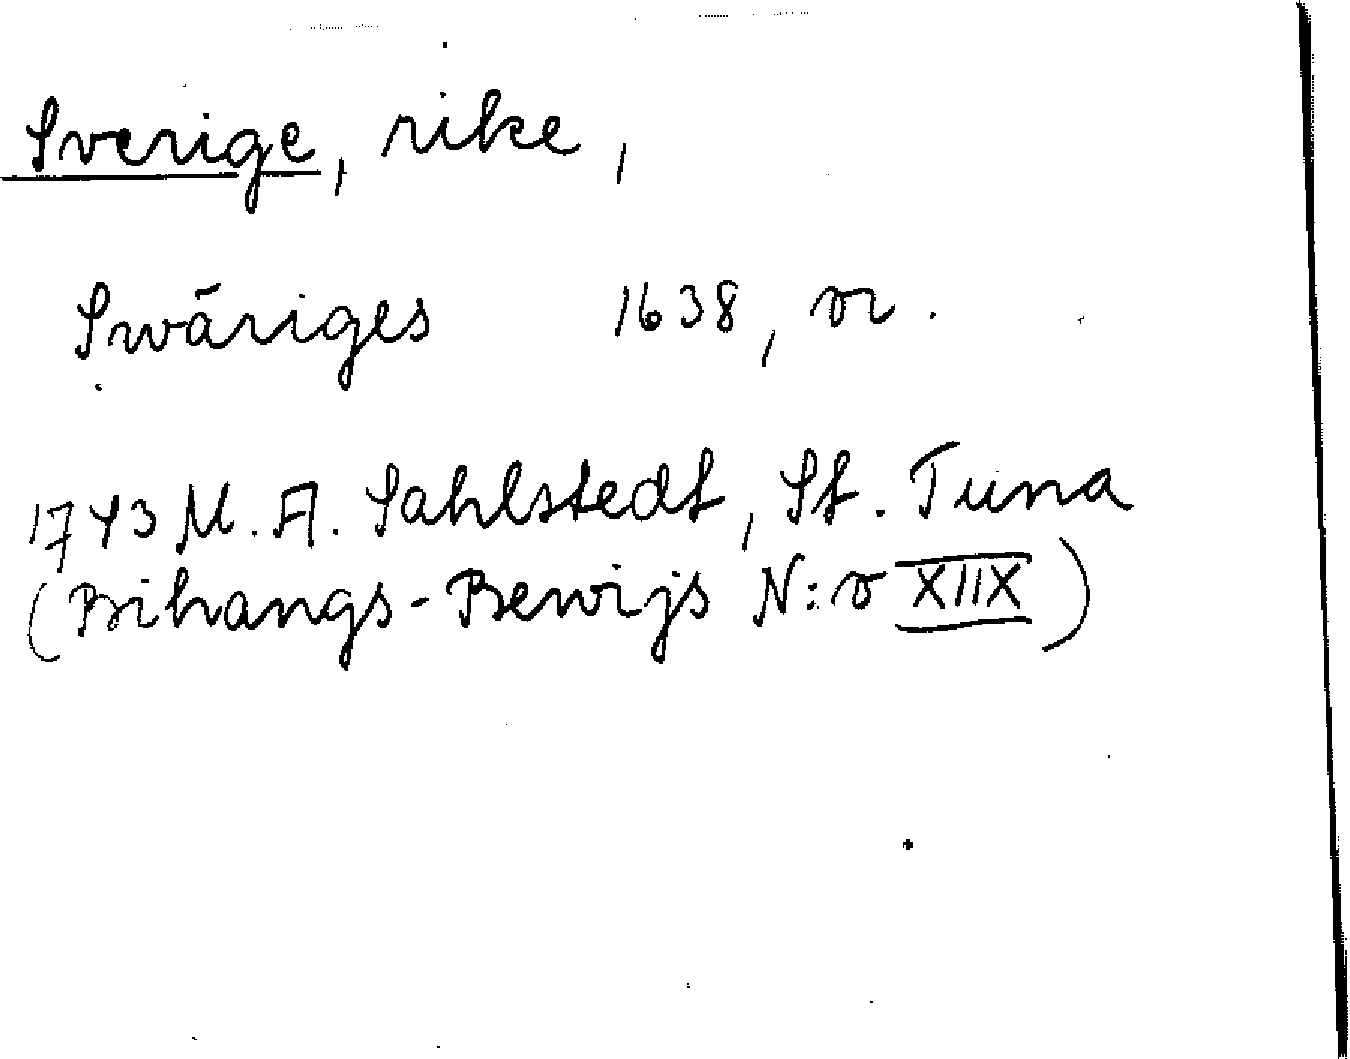 Sverige, rike,
Swäriges 1638, or.
1743 M. A. Sahlstedt, St. Tuna
(Bihangs-Bewijs N:o XIIX)